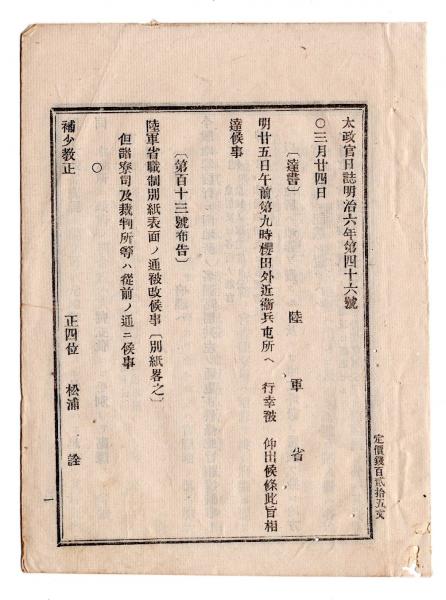 太政官日誌明治六年第四十六號
○三月廿四日
〔達書〕 陸軍省
明廿五日午前第九時櫻田外近衞兵屯所ヘ 行幸被 仰出候條此旨相
達候事
〔第百十三號布告〕
陸軍省職制別紙表面ノ通被改候事〔別紙畧之〕
但諸寮司及裁判所等ハ從前ノ通ニ候事
○
補少教正 正四位 松浦 詮
一
定價錢百貳拾五文